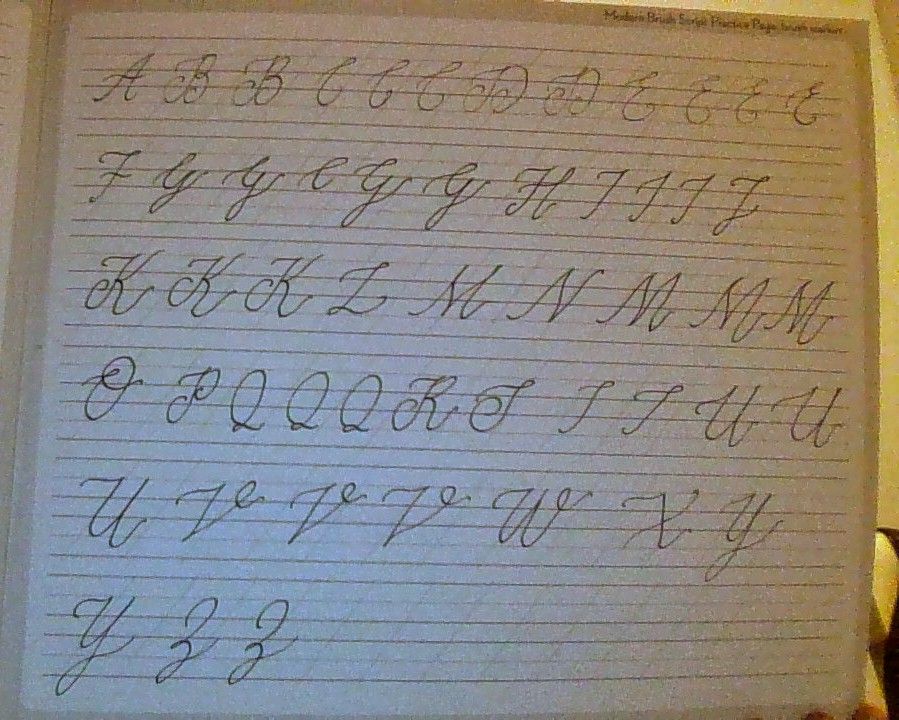 Modern Brush Script Practice Page: brush marker
A B B C C C D D E E E E
F G G C G G H I I I I
K K K L M N M M M
O P Q Q Q R S T T U U
U V V V W X Y
Y Z Z